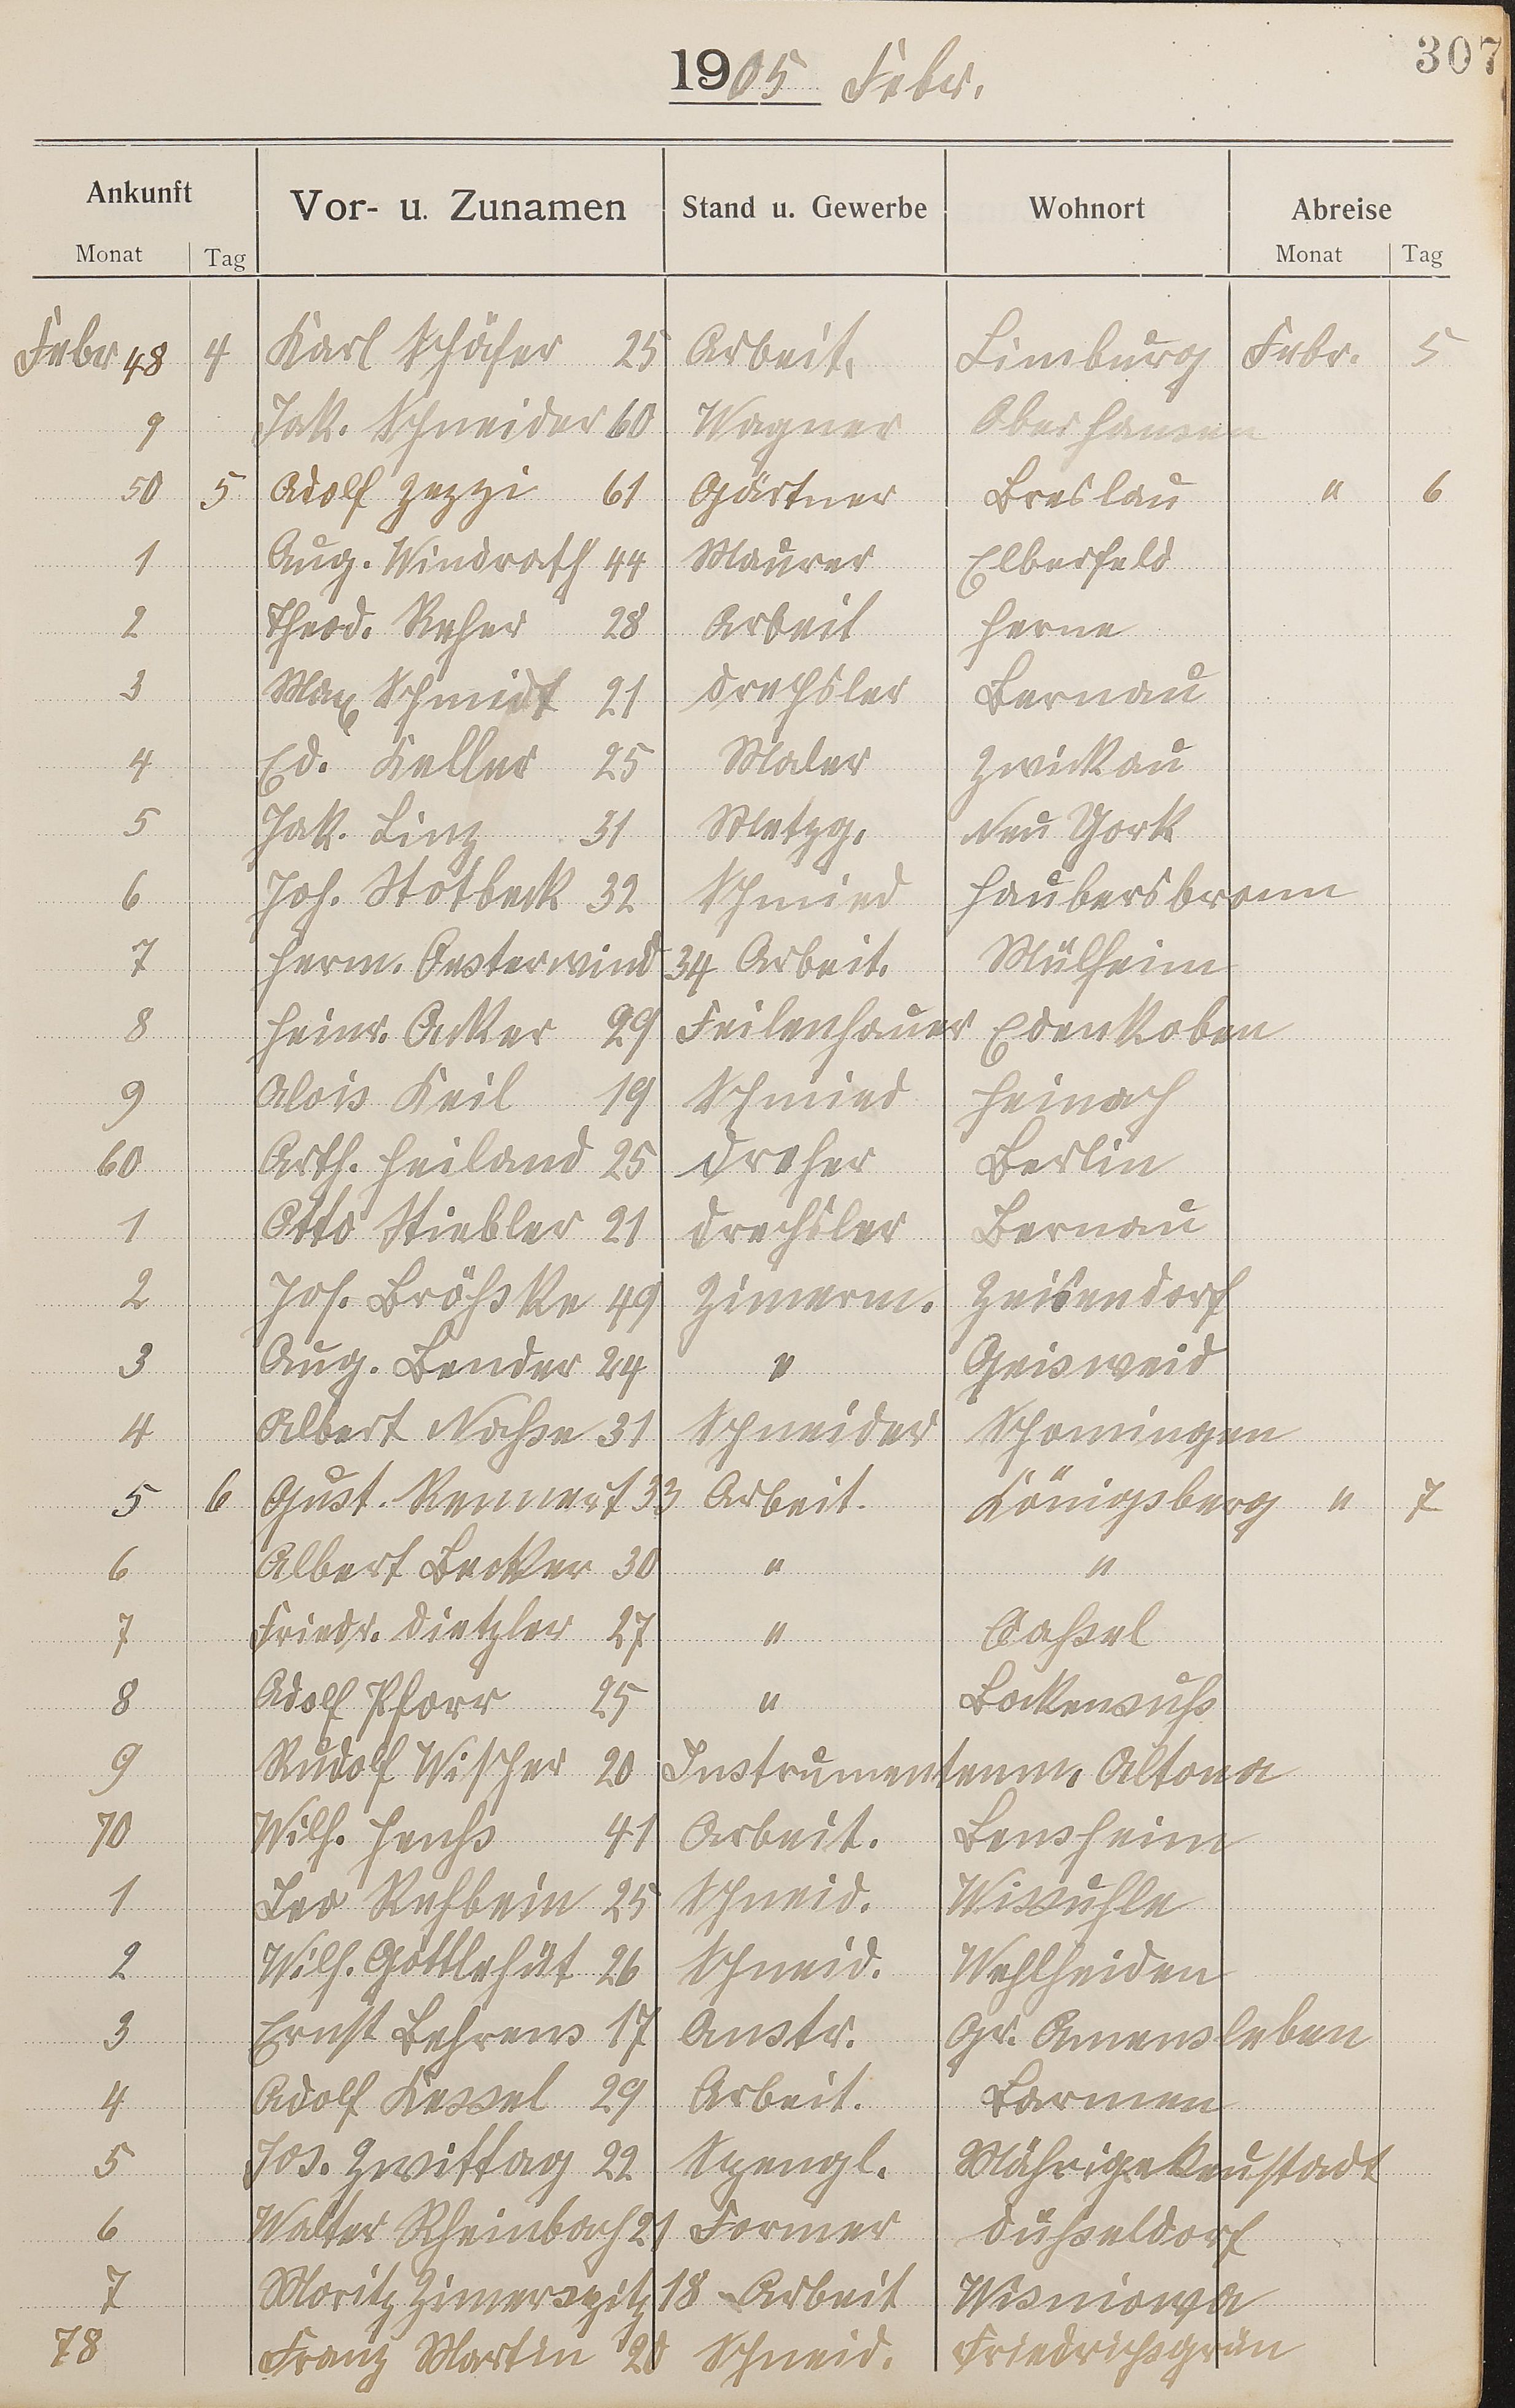 307
1905 Febr.
Ankunft Vor- u. Zunamen Stand u. Gewerbe Wohnort Abreise
Monat Tag Monat Tag
Febr 48 4 Karl Schäfer 25 Arbeit. Limburg Febr. 5
9 Jak. Schneider 60 Wagner Oberhausen
50 5 Adolf Zezzi 61 Gärtner Breslau " 6
1 Aug. Windrath 44 Maurer Elberfeld
2 Theod. Reher 28 Arbeit Herne
3 Max Schmidt 21 Drechsler Bernau
4 Ed. Keller 25 Maler Zwickau
5 Jak. Linz 31 Metzg. Neu York
6 Joh. Stotbeck 32 Schmied Haubersbronn
7 Herm. Oesterwind 34 Arbeit. Mülheim
8 Heinr. Acker 29 Feilenhauer Edenkoben
9 Alois Keil 19 Schmied Heinach
60 Arth. Heiland 25 Dreher Berlin
1 Otto Stiebler 21 Drechsler Bernau
2 Jos. Bröhske 49 Zimerm. Zeisendorf
3 Aug. Bender 24 " Geisweid
4 Albert Nohse 31 Schneider Schomingen
5 6 Gust. Rennert 33 Arbeit. Königsberg " 7
6 Albert Becker 30 " "
7 Friedr. Dietzler 27 " Cahsel
8 Adolf Pforr 25 " Bockensuhs
9 Rudolf Wischer 20 Instrumentenm. Altona
70 Wilh. Henhs 41 Arbeit. Bensheim
1 Leo Rehbein 25 Schneid. Wissuhle
2 Wilh. Göttlehüt 26 Schneid. Wehlheiden
3 Ernst Behrens 17 Anstr. Gr. Amensleben
4 Adolf Kessel 29 Arbeit. Barmen
5 Jos. Zwittag 22 Spengl. Mährigekeustadt
6 Walter Rheinbach 21 Former Dühseldorf
7 Moritz Zimerspitz 18 Arbeit Wisniowa
78 Franz Martin 20 Schneid. Friedrichsgrün